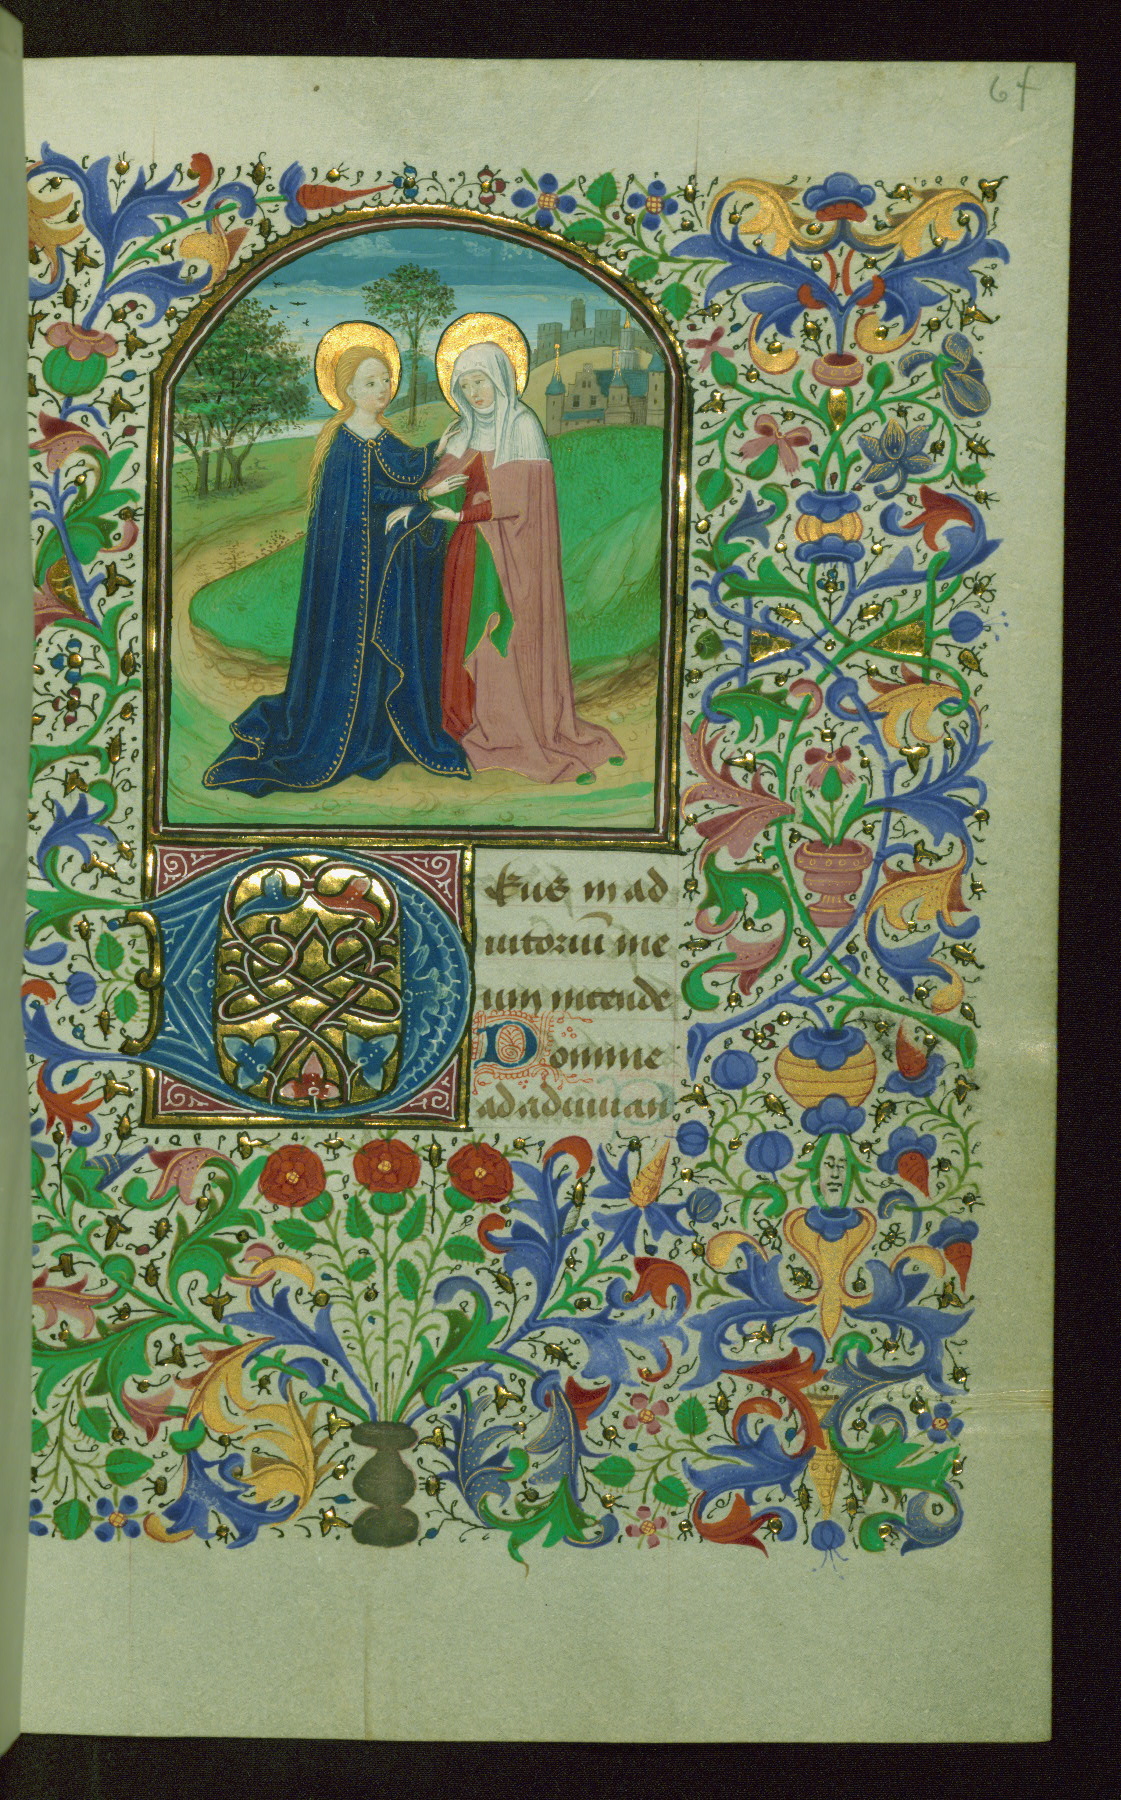 67
Deus in ad
iutoriu me
um intende
Domine
ad adiuuan